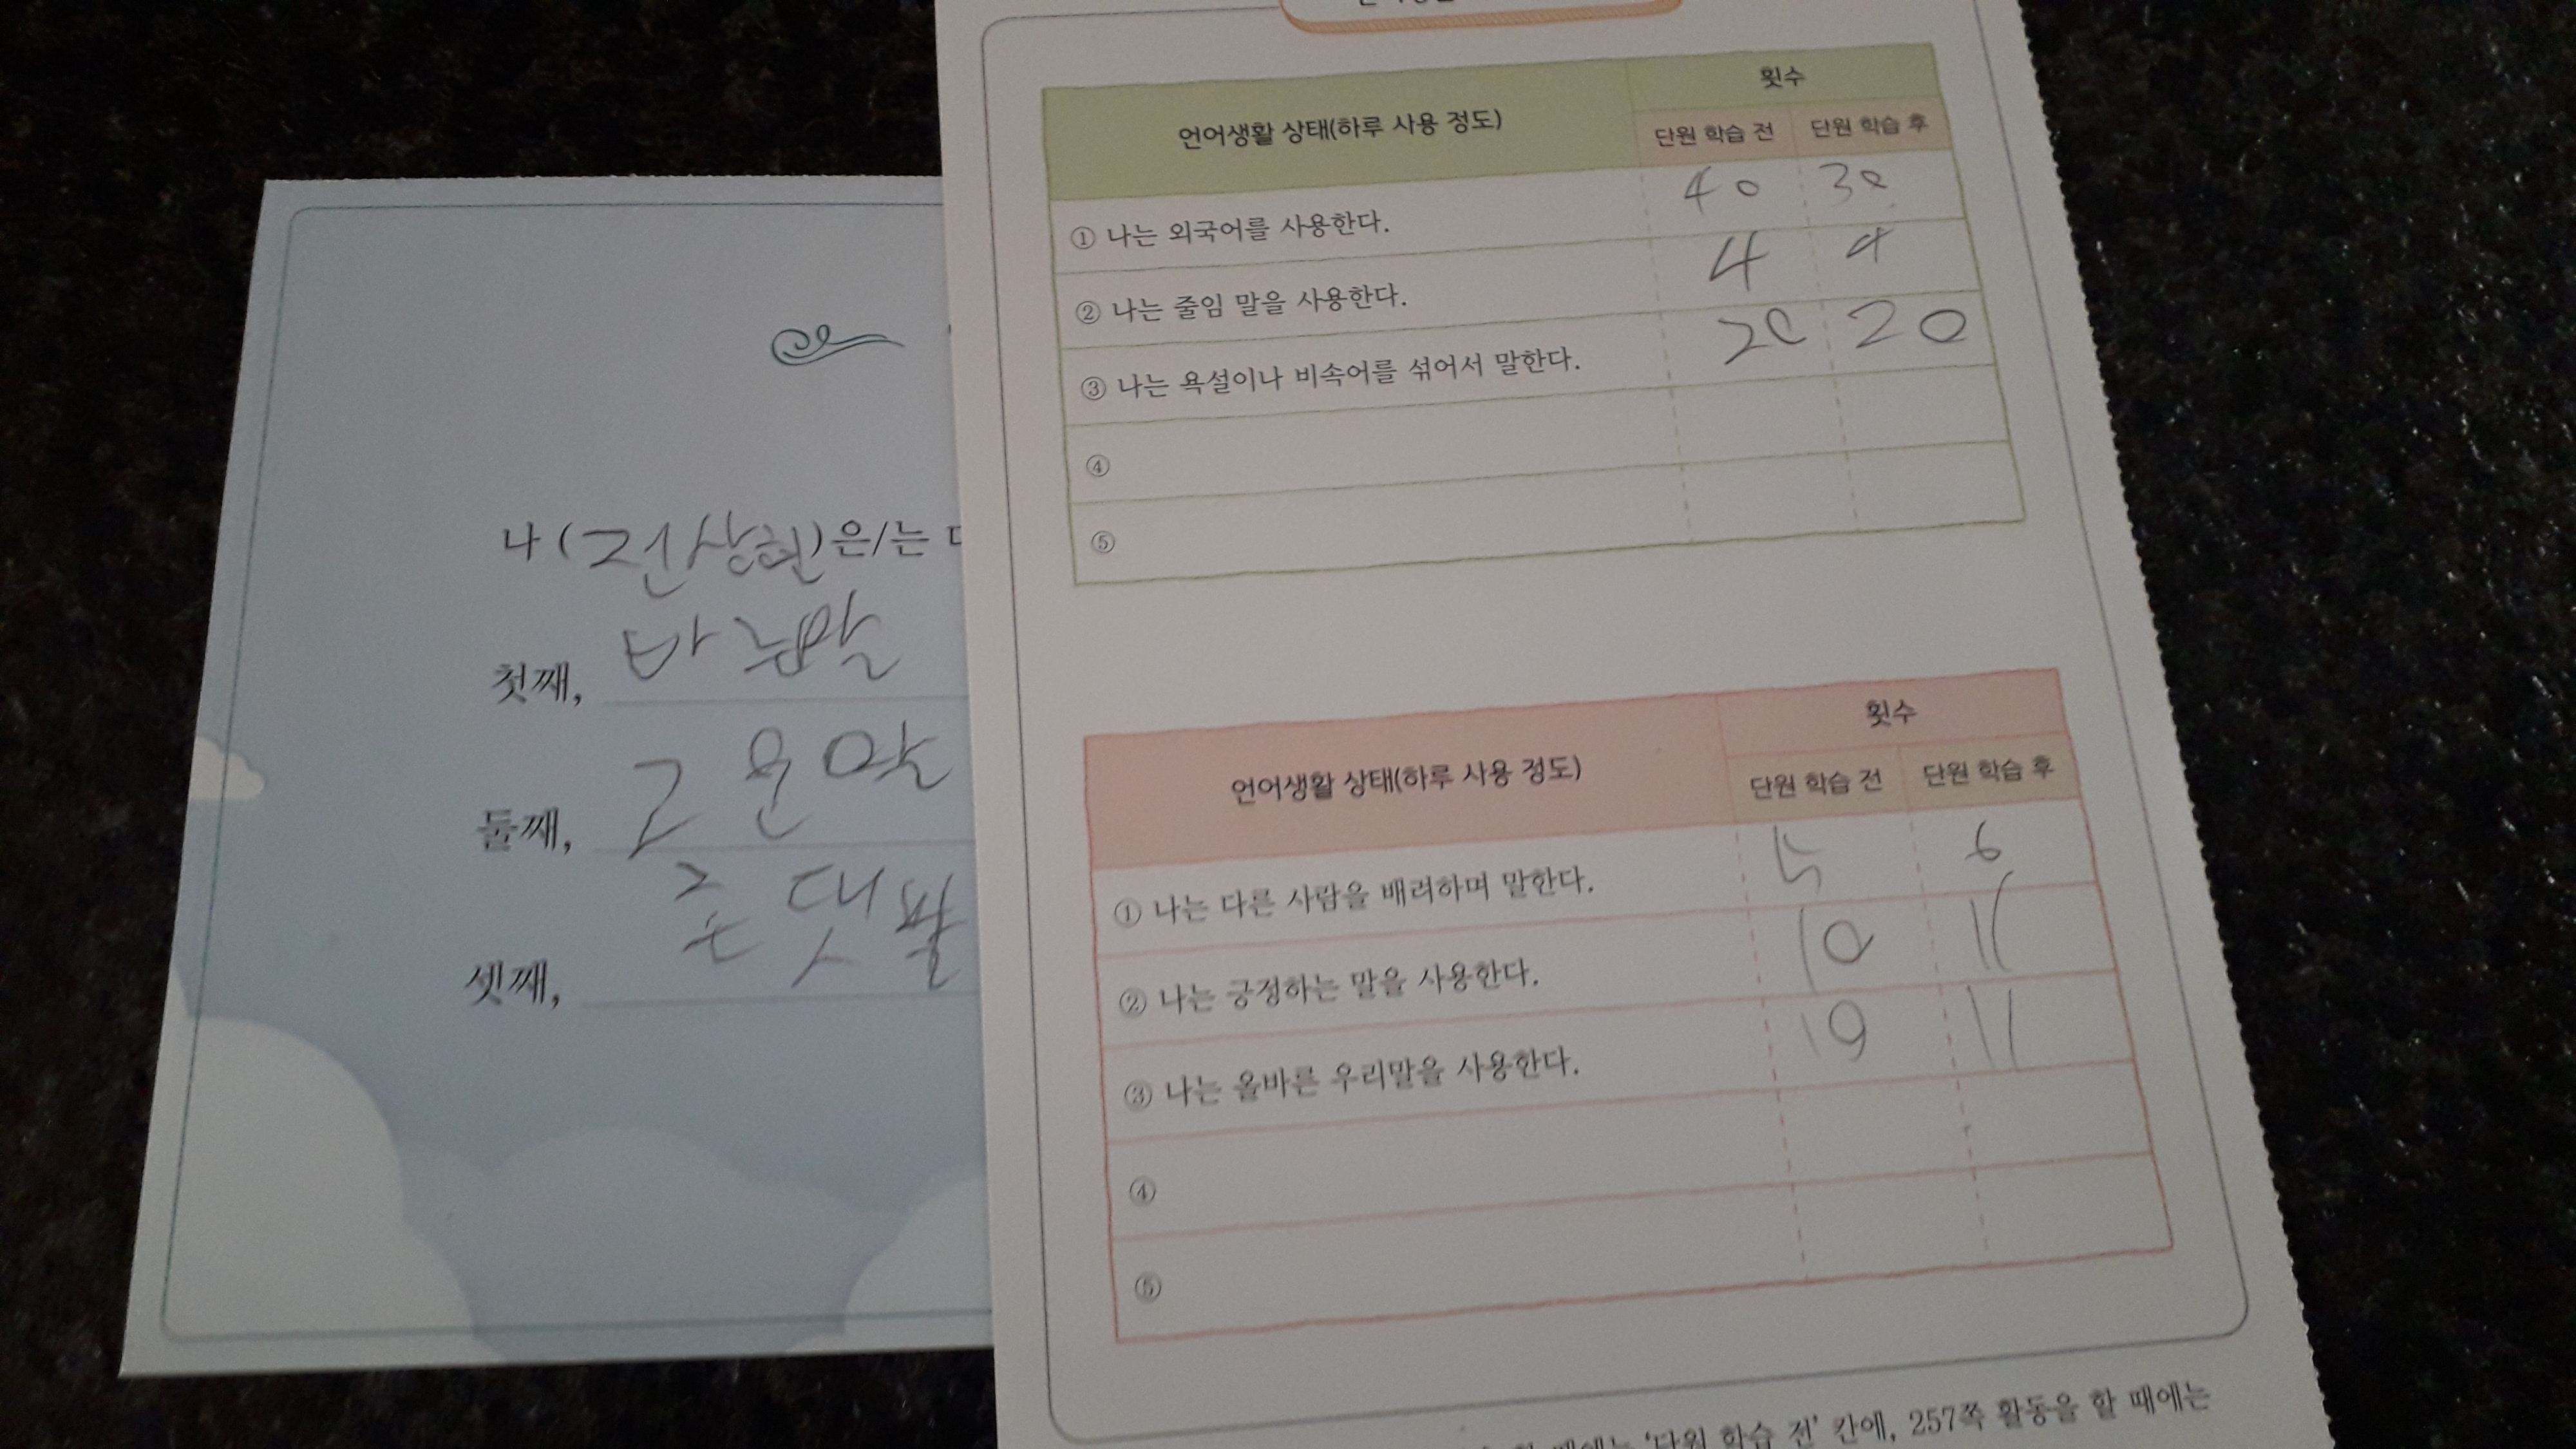 나 (전상현)은/는
첫째, 바른말
둘째, 고운말
셋째,
횟수
언어생활 상태(하루 사용 정도)
단원 학습 전 단원 학습 후
① 나는 외국어를 사용한다. 40 30
② 나는 줄임 말을 사용한다. 4 4
③ 나는 욕설이나 비속어를 섞어서 말한다. 20 20
④
⑤
횟수
언어생활 상태(하루 사용 정도)
단원 학습 전 단원 학습 후
① 나는 다른 사람을 배려하며 말한다. 5 6
② 나는 긍정하는 말을 사용한다. 10 11
③ 나는 올바른 우리말을 사용한다. 11
④
⑤
'단원 학습 전' 칸에, 257쪽 활동을 할 때에는